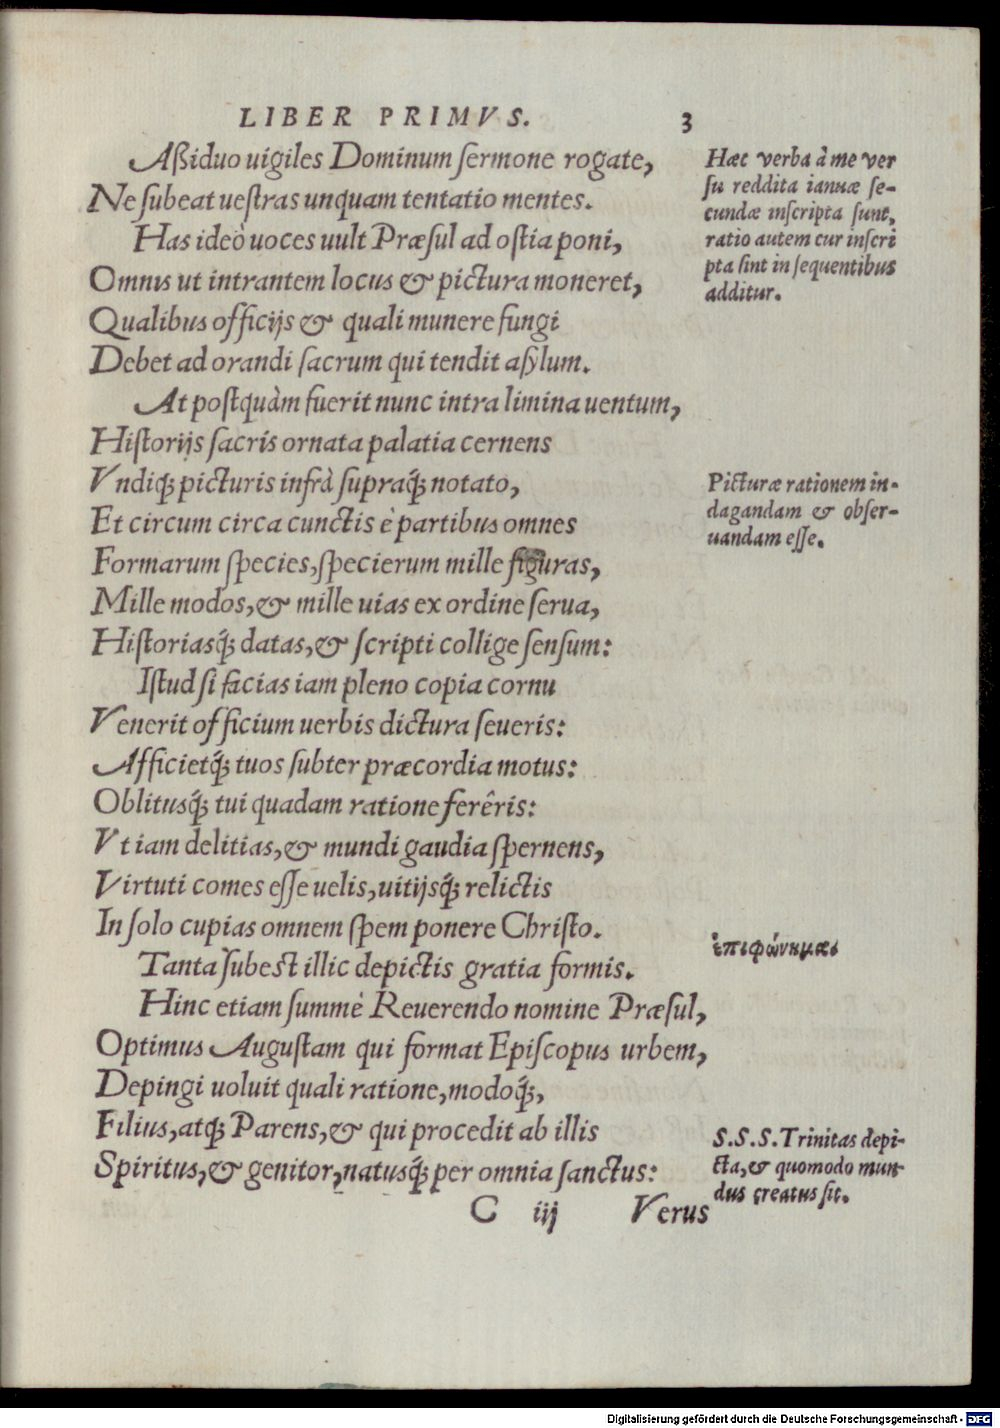 LIBER PRIMVS. 3
Aßiduo uigiles Dominum ſermone rogate,
Ne ſubeat ueſtras unquam tentatio mentes.
Has ideò uoces uult Præſul ad oſtia poni,
Omnis ut intrantem locus & pictura moneret,
Qualibus officijs & quali munere fungi
Debet ad orandi ſacrum qui tendit aſylum.
At poſtquàm fuerit nunc intra limina uentum,
Hiſtorijs ſacris ornata palatia cernens
Vndiq́; picturis infrà ſupraq́; notato,
Et circum circa cunctis è partibus omnes
Formarum ſpecies, ſpecierum mille figuras,
Mille modos, & mille uias ex ordine ſerua,
Hiſtoriasq́; datas, & ſcripti collige ſenſum:
Iſtud ſi facias iam pleno copia cornu
Venerit officium uerbis dictura ſeueris:
Afficietq́; tuos ſubter præcordia motus:
Oblitusq́; tui quadam ratione ferêris:
Vt iam delitias, & mundi gaudia ſpernens,
Virtuti comes eſſe uelis, uitijsq́; relictis
In ſolo cupias omnem ſpem ponere Chriſto.
Tanta ſubest illic depictis gratia formis.
Hinc etiam ſummè Reuerendo nomine Præſul,
Optimus Auguſtam qui format Epiſcopus urbem,
Depingi uoluit quali ratione, modoq́;,
Filius, atq́; Parens, & qui procedit ab illis
Spiritus, & genitor, natusq́; per omnia ſanctus:
C iij Verus
Hæc verba à me ver
ſu reddita ianuæ ſe-
cundæ inſcripta ſunt,
ratio autem cur inſcri
pta ſint in ſequentibus
additur.
Picturæ rationem in-
dagandam & obſer-
uandam eſſe.
ἐπιφώνημαι
S.S.S. Trinitas depi-
cta, & quomodo mun-
dus creatus ſit.
Digitalisierung gefördert durch die Deutsche Forschungsgemeinschaft - DFG